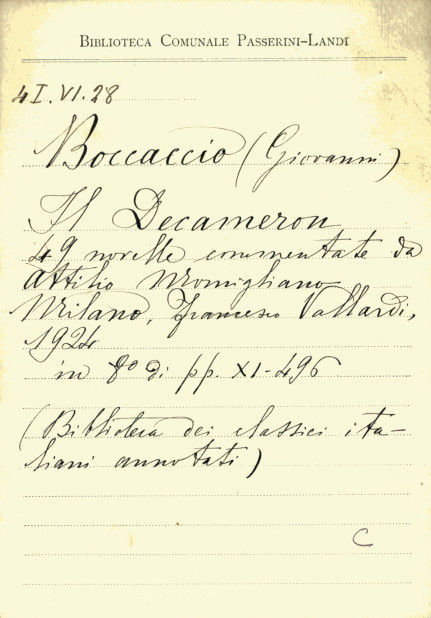 BIBLIOTECA COMUNALE PASSERINI-LANDI
4 I. VI. 28
Boccaccio (Giovanni)
Il Decameron
49 novelle commentate da
Attilio Momigliano
Milano, Francesco Vallardi,
1924
in 8º di pp. XI-496
(Biblioteca dei classici ita-
liani annotati)
C